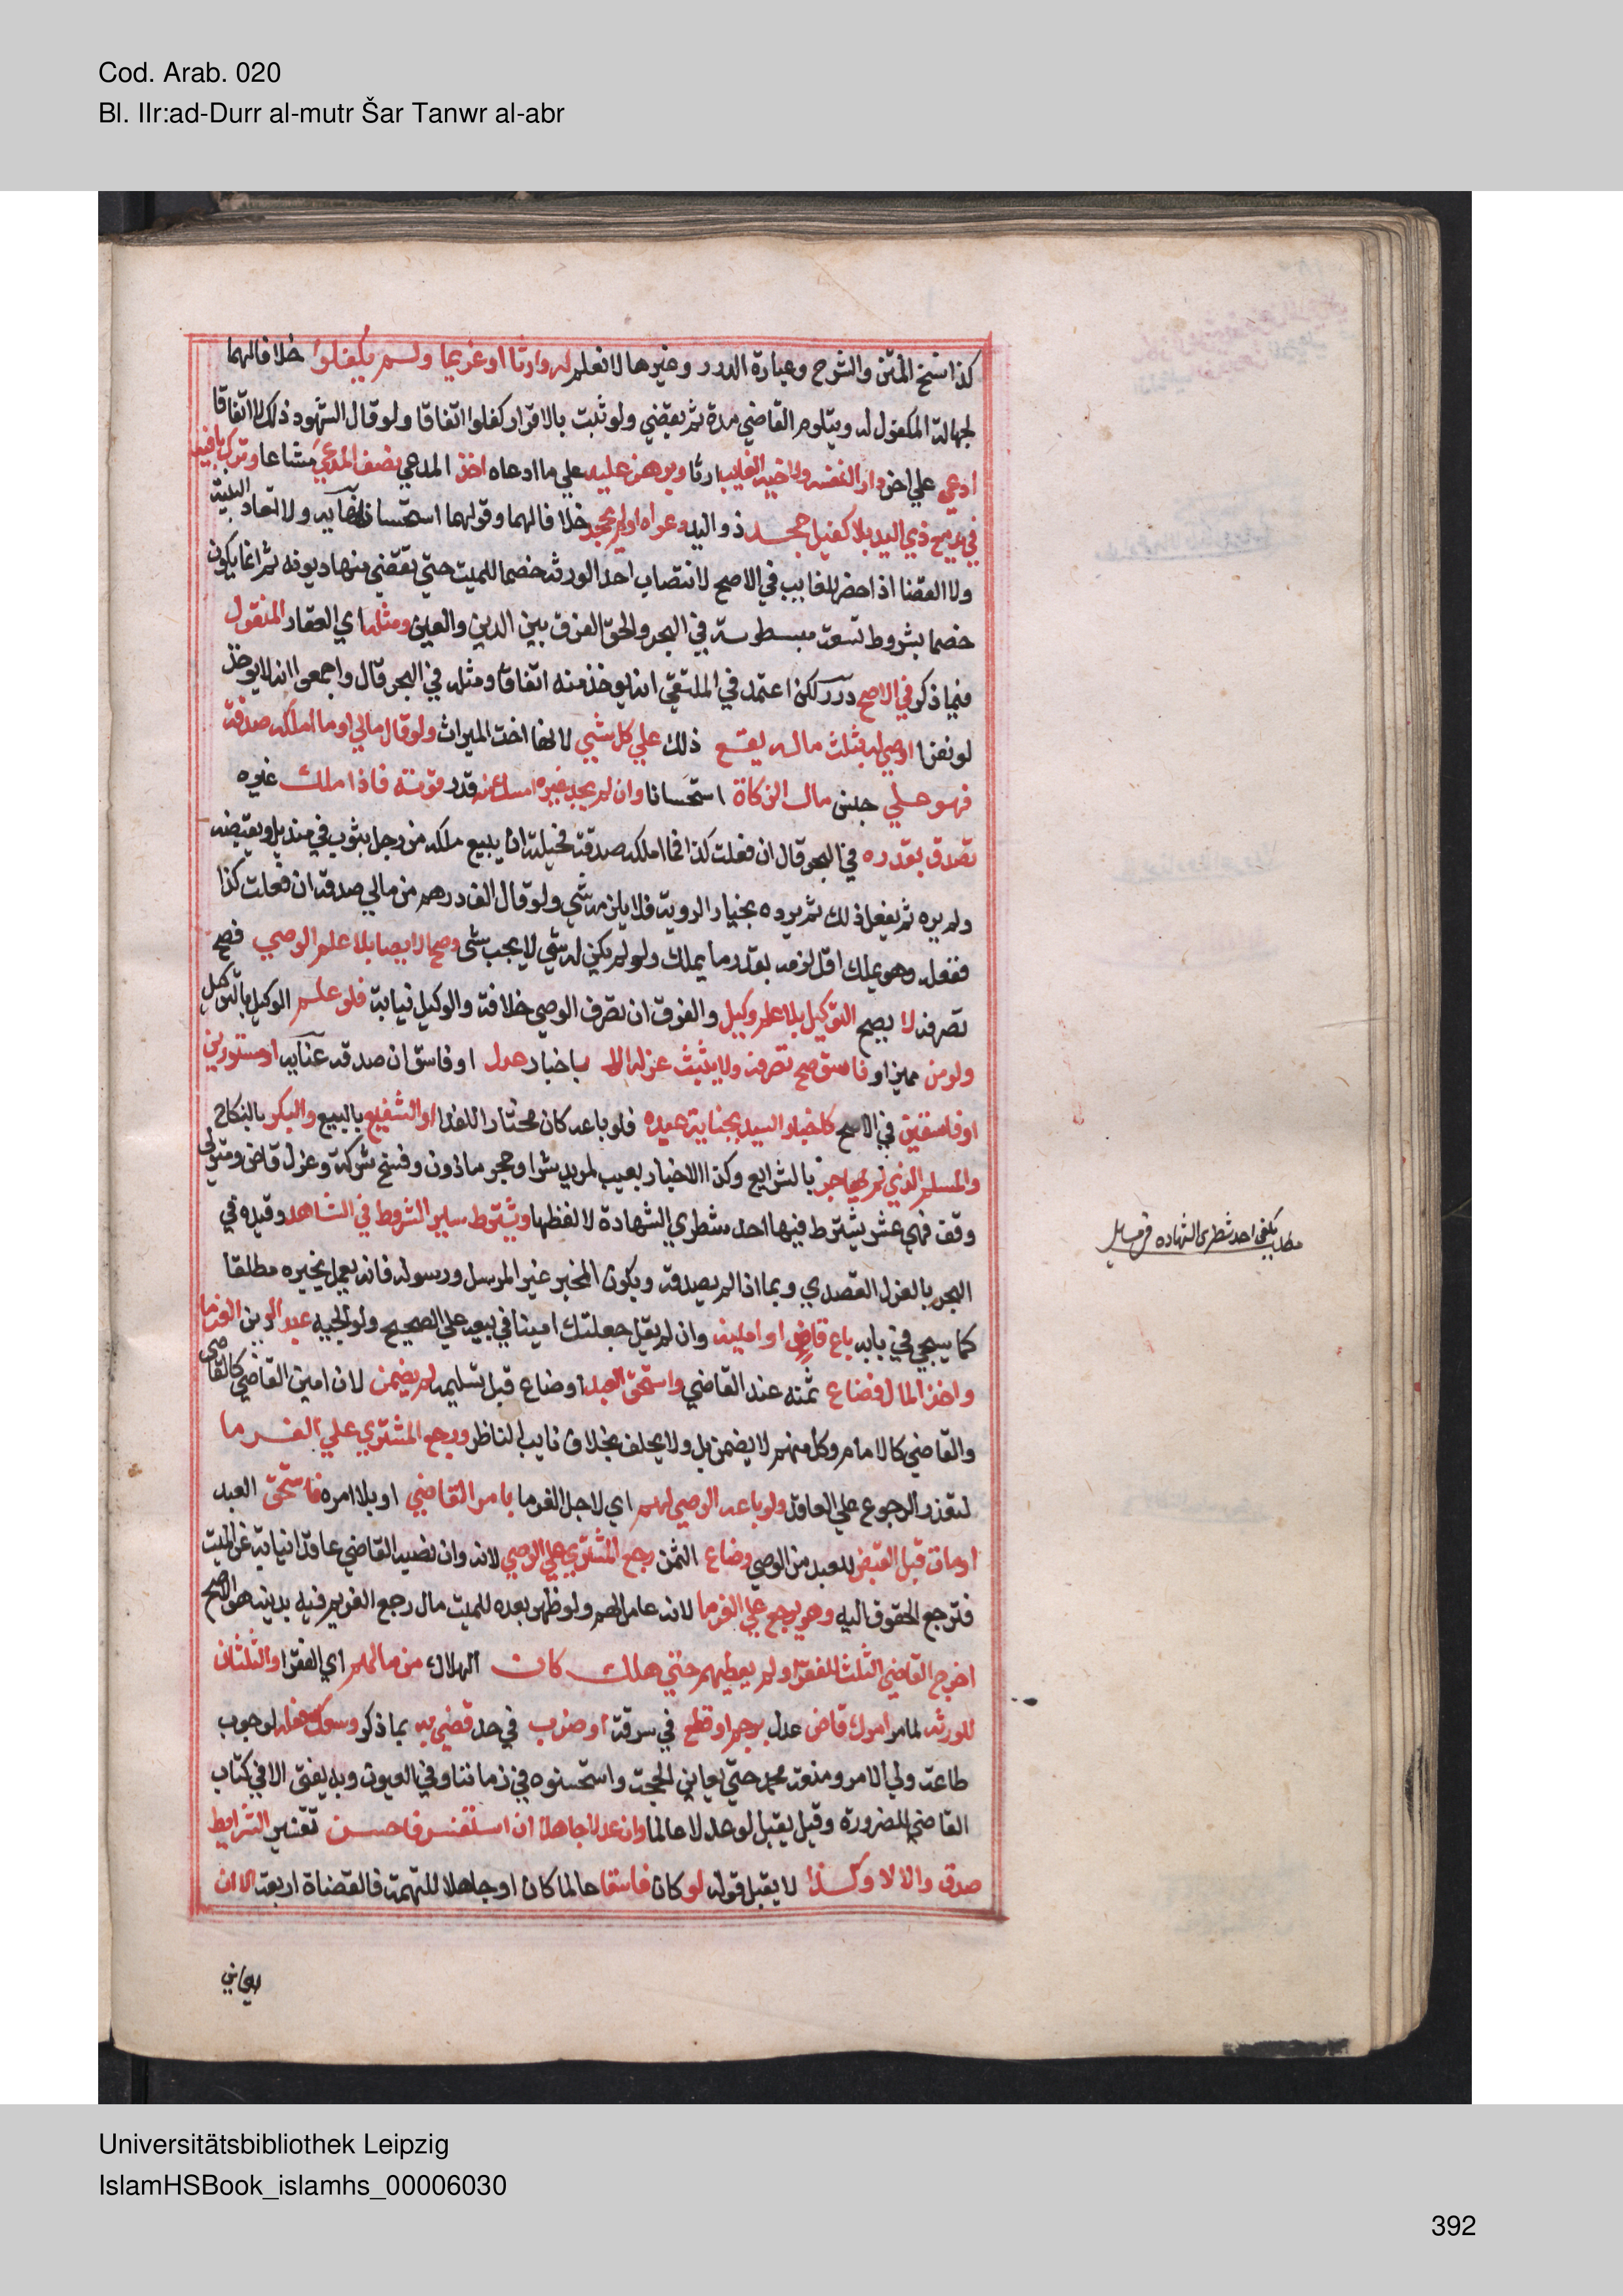 Cod. Arab. 020
Bl. IIr:ad-Durr al-mutr Šar Tanwr al-abr
كذا نسخ المتن والشرح وعبارة الدرر وغيرها لا نعلم له وارثا او غريما ولم يكفلوا خلافا لهما
لجهالة المكفول له ويتلوم القاضي مدة ثم يقضي ولو ثبت بالاقرار كفلوا اتفاقا ولو قال الشهود ذلك لا اتفاقا
ادعي علي اخر دار النفسه ولاخيه الغايب ارثا وبرهن عليه علي ما ادعاه اخذ المدعي نصف المدعي مشاعا وترك باقيه
في يد مع ذي اليد بلا كفيل جحد ذو اليد دعواه او لم يجحد خلافا لهما وقولهما استحسان نهاية ولا تعاد البينة
ولا القضا اذا حضر الغايب في الاصح لانتصاب احد الورثه خصما للميت حتي تقضي منها ديونه ثم انما يكون
خصما بشروط تسعة مبسوطة في البحر والحق الفرق بين الدين والعين ومثله اي العقار المنقول
فيما ذكر في الاصح درر لكن اعتمد في الملتقي انه يوخذ منه اتفاقا ومثله في البحر قال واجمعوا انه لا يوخذ
لو نفرا اوصي له بثلث ماله يقع ذلك علي كل شيي لانها اخت الميراث ولو قال مالي او ما املكه صدقة
فهو علي جنس مال الزكاة استحسانا وان لم يجد غيره امسك منه قدر قوته فاذا ملك غيره
تصدق بقدره في البحر قال ان فعلت كذا فما املكه صدقة فحيلته ان يبيع ملكه من رجل بثوب في منديل ويقبضه
ولم يره ثم يفعل ذلك ثم يرده بخيار الروية فلا يلزمه شي ولو قال الف درهم من مالي صدقة ان فعلت كذا
ففعله وهو يملك اقل لزمه بقدر ما يملك ولو لم يكن له شي لا يجب شي وصح الايصا بلا علم الوصي فصح
تصرفه لا يصح التوكيل بلا علم وكيل والفرق ان تصرف الوصي خلافة والوكيل نيابة فلو علم الوكيل بالتوكيل
ولو من مميز او فاسق صح تصرفه ولا يثبت عزله الا باخبار عدل او فاسق ان صدقه عناية او مستورين
او فاسقين في الاصح كاخبار السيد بجناية عبده فلو باعه كان مختارا للفدا او الشفيع بالبيع والبكر بالنكاح
والمسلم الذي لم يهاجر بالشرايع وكذا الاخبار بعيب لمريد شرا وحجر ماذون وفسخ شركة وعزل قاض ومتولي
وقف فهي عشر يشترط فيها احد شطري الشهادة لا لفظها ويشترط ساير الشروط في الشاهد وقيده في
البحر بالعزل القصدي وبما اذا لم يصدقه ويكون المخبر غير المرسل ورسوله فانه يعمل بخبره مطلقا
كما سيجي في بابه باع قاض او امينه وان لم يقل جعلتك امينا في بيعه علي الصحيح ولوالجيه عبدا لدين الغرما
واخذ المال فضاع ثمنه عند القاضي واستحق العبد او ضاع قبل تسليمه لم يضمن لان امين القاضي كالقاضي
والقاضي كالامام وكل منهم لا يضمن بل ولا يحلف بخلاف نايب الناظر ورجع المشتري علي الغرما
لتعذر الرجوع علي العاقد ولو باعه الوصي لهم اي لاجل الغرما بامر القاضي او بلا امره فاستحق العبد
او مات قبل القبض للعبد من الوصي وضاع الثمن رجع المشتري علي الوصي لانه وان نصبه القاضي عاقد نيابة عن الميت
فترجع الحقوق اليه وهو يرجع علي الغرما لانه عامل لهم ولو ظهر بعده للميت مال رجع الغريم فيه بدينه هو الاصح
اخرج القاضي الثلث للفقرا ولم يعطهم حتي هلك كان الهلاك من مالهم اي الفقرا والثلثان
للورثه لما مر امرك قاض عدل برجم او قطع في سرقة او ضرب في حد قضي به بما ذكر وسعك فعله لوجوب
طاعة ولي الامر ومنعه محمد حتي يعاين الحجة واستحسنوه في زماننا وفي العيون وبه يفتي الا في كتاب
القاضي للضرورة وقيل يقبل لو عدلا عالما وان عدلا جاهلا ان استفسر فاحسن تفسير الشرايط
صدق والا لا وكذا لا يقبل قوله لو كان فاسقا عالما كان او جاهلا للتهمة فالقضاة اربعة الا ان
يعاين
مطلب يكفي احد شطري الشهاده في مسايل
Universitätsbibliothek Leipzig
IslamHSBook_islamhs_00006030
392